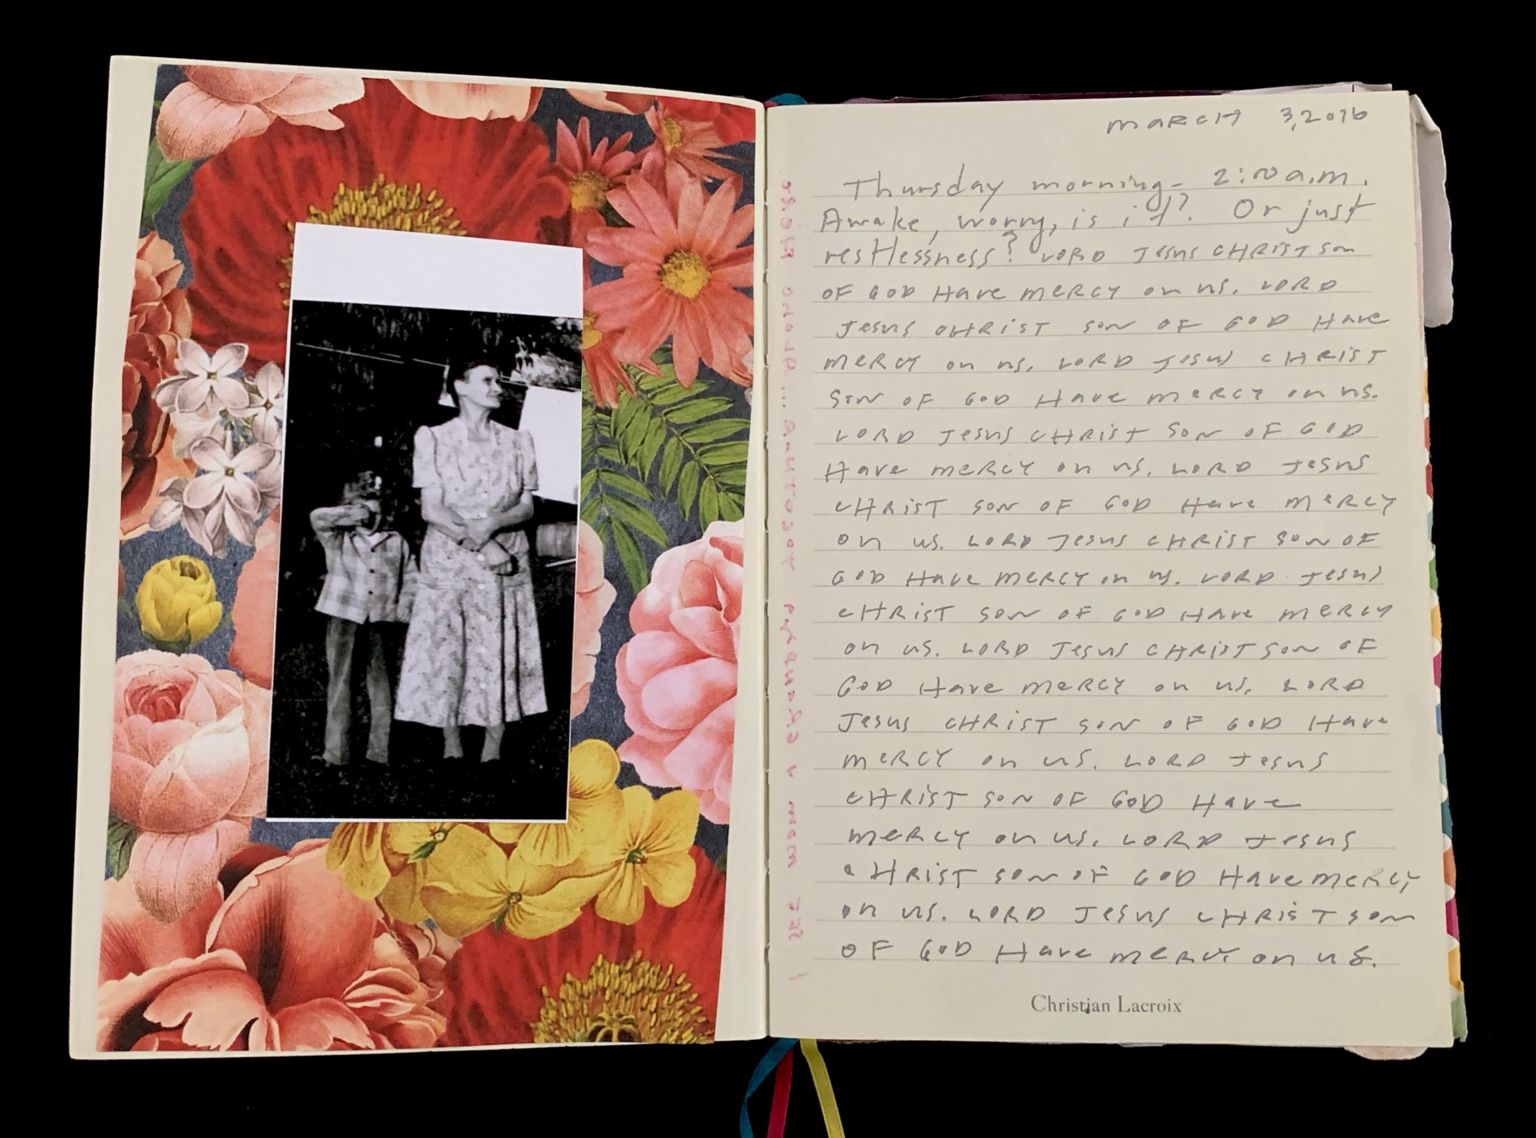 MARCH 3, 2016
Thursday morning - 2:00 a.m.
Awake, worry, is it? Or just
restlessness? LORD Jesus CHRIST SON
OF GOD Have MERCY on us. LORD
Jesus CHRIST SON OF GOD Have
MERCY on us. LORD Jesus CHRIST
SON OF GOD Have MERCY on us.
LORD Jesus CHRIST SON OF GOD
Have MERCY on us. LORD Jesus
CHRIST SON OF GOD Have MERCY
on us. LORD Jesus CHRIST SON OF
GOD Have MERCY on us. LORD Jesus
CHRIST SON OF GOD Have MERCY
on us. LORD Jesus CHRIST SON OF
GOD Have MERCY on us. LORD
Jesus CHRIST SON OF GOD Have
MERCY on us. LORD Jesus
CHRIST SON OF GOD Have
MERCY on us. LORD Jesus
CHRIST SON OF GOD Have MERCY
on us. LORD Jesus CHRIST SON
OF GOD Have MERCY on us.
Christian Lacroix